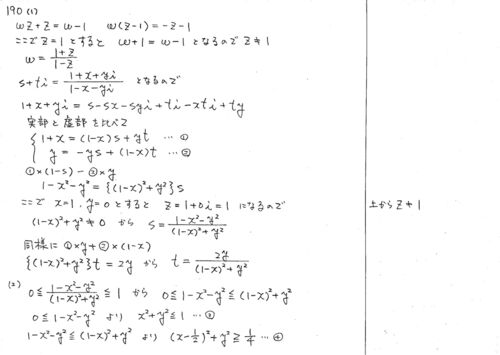 190 (1)
wz+z=w-1　w(z-1)=-z-1
ここでz=1とすると w+1=w-1となるのでz≠1
w=\frac{1+z}{1-z}
s+ti=\frac{1+x+yi}{1-x-yi} となるので
1+x+yi=s-sx-syi+ti-xti+ty
実部と虚部を比べて
{ 1+x=(1-x)s+yt …①
y=-ys+(1-x)t …②
①×(1-s)-②×y
1-x²-y²={(1-x)²+y²}s
ここで x=1, y=0とすると z=1+0i=1 になるので
(1-x)²+y²≠0 から s=\frac{1-x²-y²}{(1-x)²+y²}
同様に ①×y+②×(1-x)
{(1-x)²+y²}t=2y から t=\frac{2y}{(1-x)²+y²}
(2) 0≦\frac{1-x²-y²}{(1-x)²+y²}≦1 から 0≦1-x²-y²≦(1-x)²+y²
0≦1-x²-y² より x²+y²≦1 …③
1-x²-y²≦(1-x)²+y² より (x-\frac{1}{2})²+y²≧\frac{1}{4} …④
上からz≠1